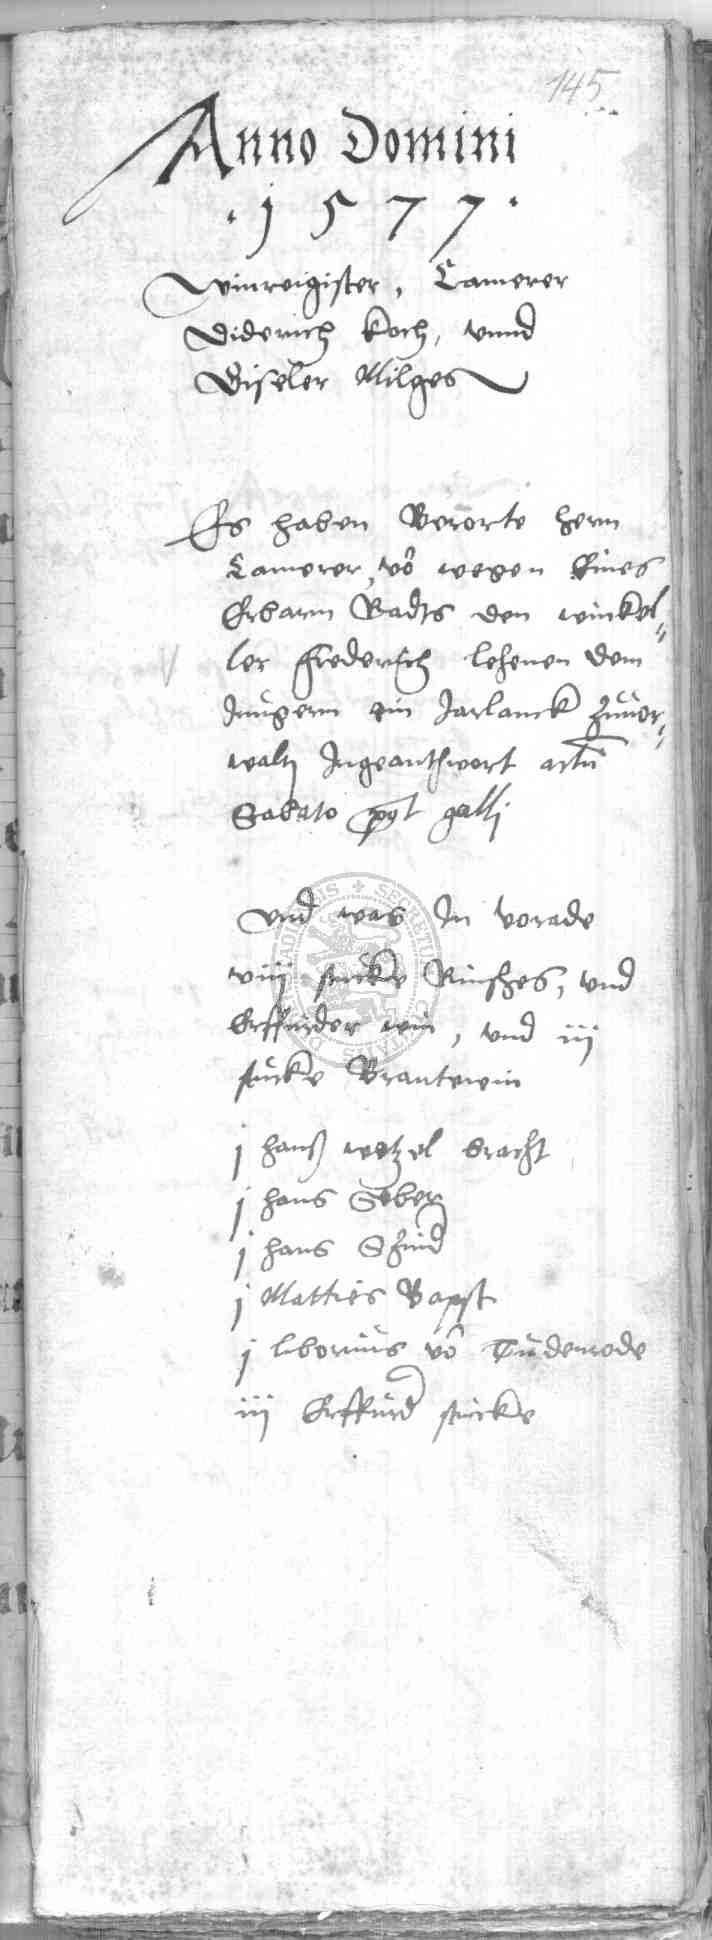 145
Anno Domini
· 1 5 7 7 ·
Winregister, Camerer
Diderich Koch, vnnd
Giseler Milges
Es haben Berorte hern
Camerer, vō wegen Eines
Erbarn Radts den winkel„
ler Frederich lehenen dem
Jungern ein Jarlanck zuuor„
waltē Ingeanthwort actū
Sabato post galli
Vnd was In vorade
viij stucke Rinsches, vnd
Erffurder win, vnd iij
stucke Brantewin
j hanß wetzel bracht
j hans Seber
j hans
j Matties Bapst
j liborius vō Tudenrode
iij Erffurd stucke